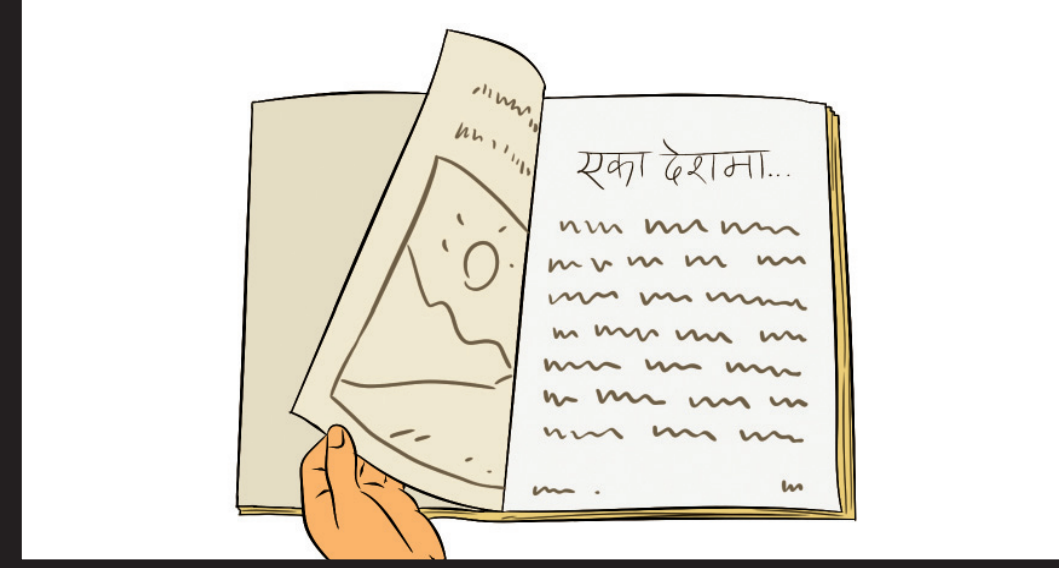 एका देशमा...